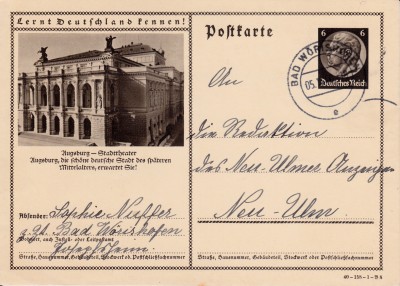 Lernt Deutschland kennen!
Augsburg — Stadttheater
Augsburg, die schöne deutsche Stadt des späteren
Mittelalters, erwartet Sie!
Absender: Sophie
z. Zt. Bad Wörishofen
Wohnort, auch Zustell- oder Leitpostamt
Straße, Hausnummer, Gebäudeteil, Stockwerk od. Postschließfachnummer
Postkarte
6 6
Deutsches Reich
BAD WÖRIS
05.
e
An
die Redaktion
des Neu-Ulmer Anzeigers
Neu-Ulm
Straße, Hausnummer, Gebäudeteil, Stockwerk oder Postschließfachnummer